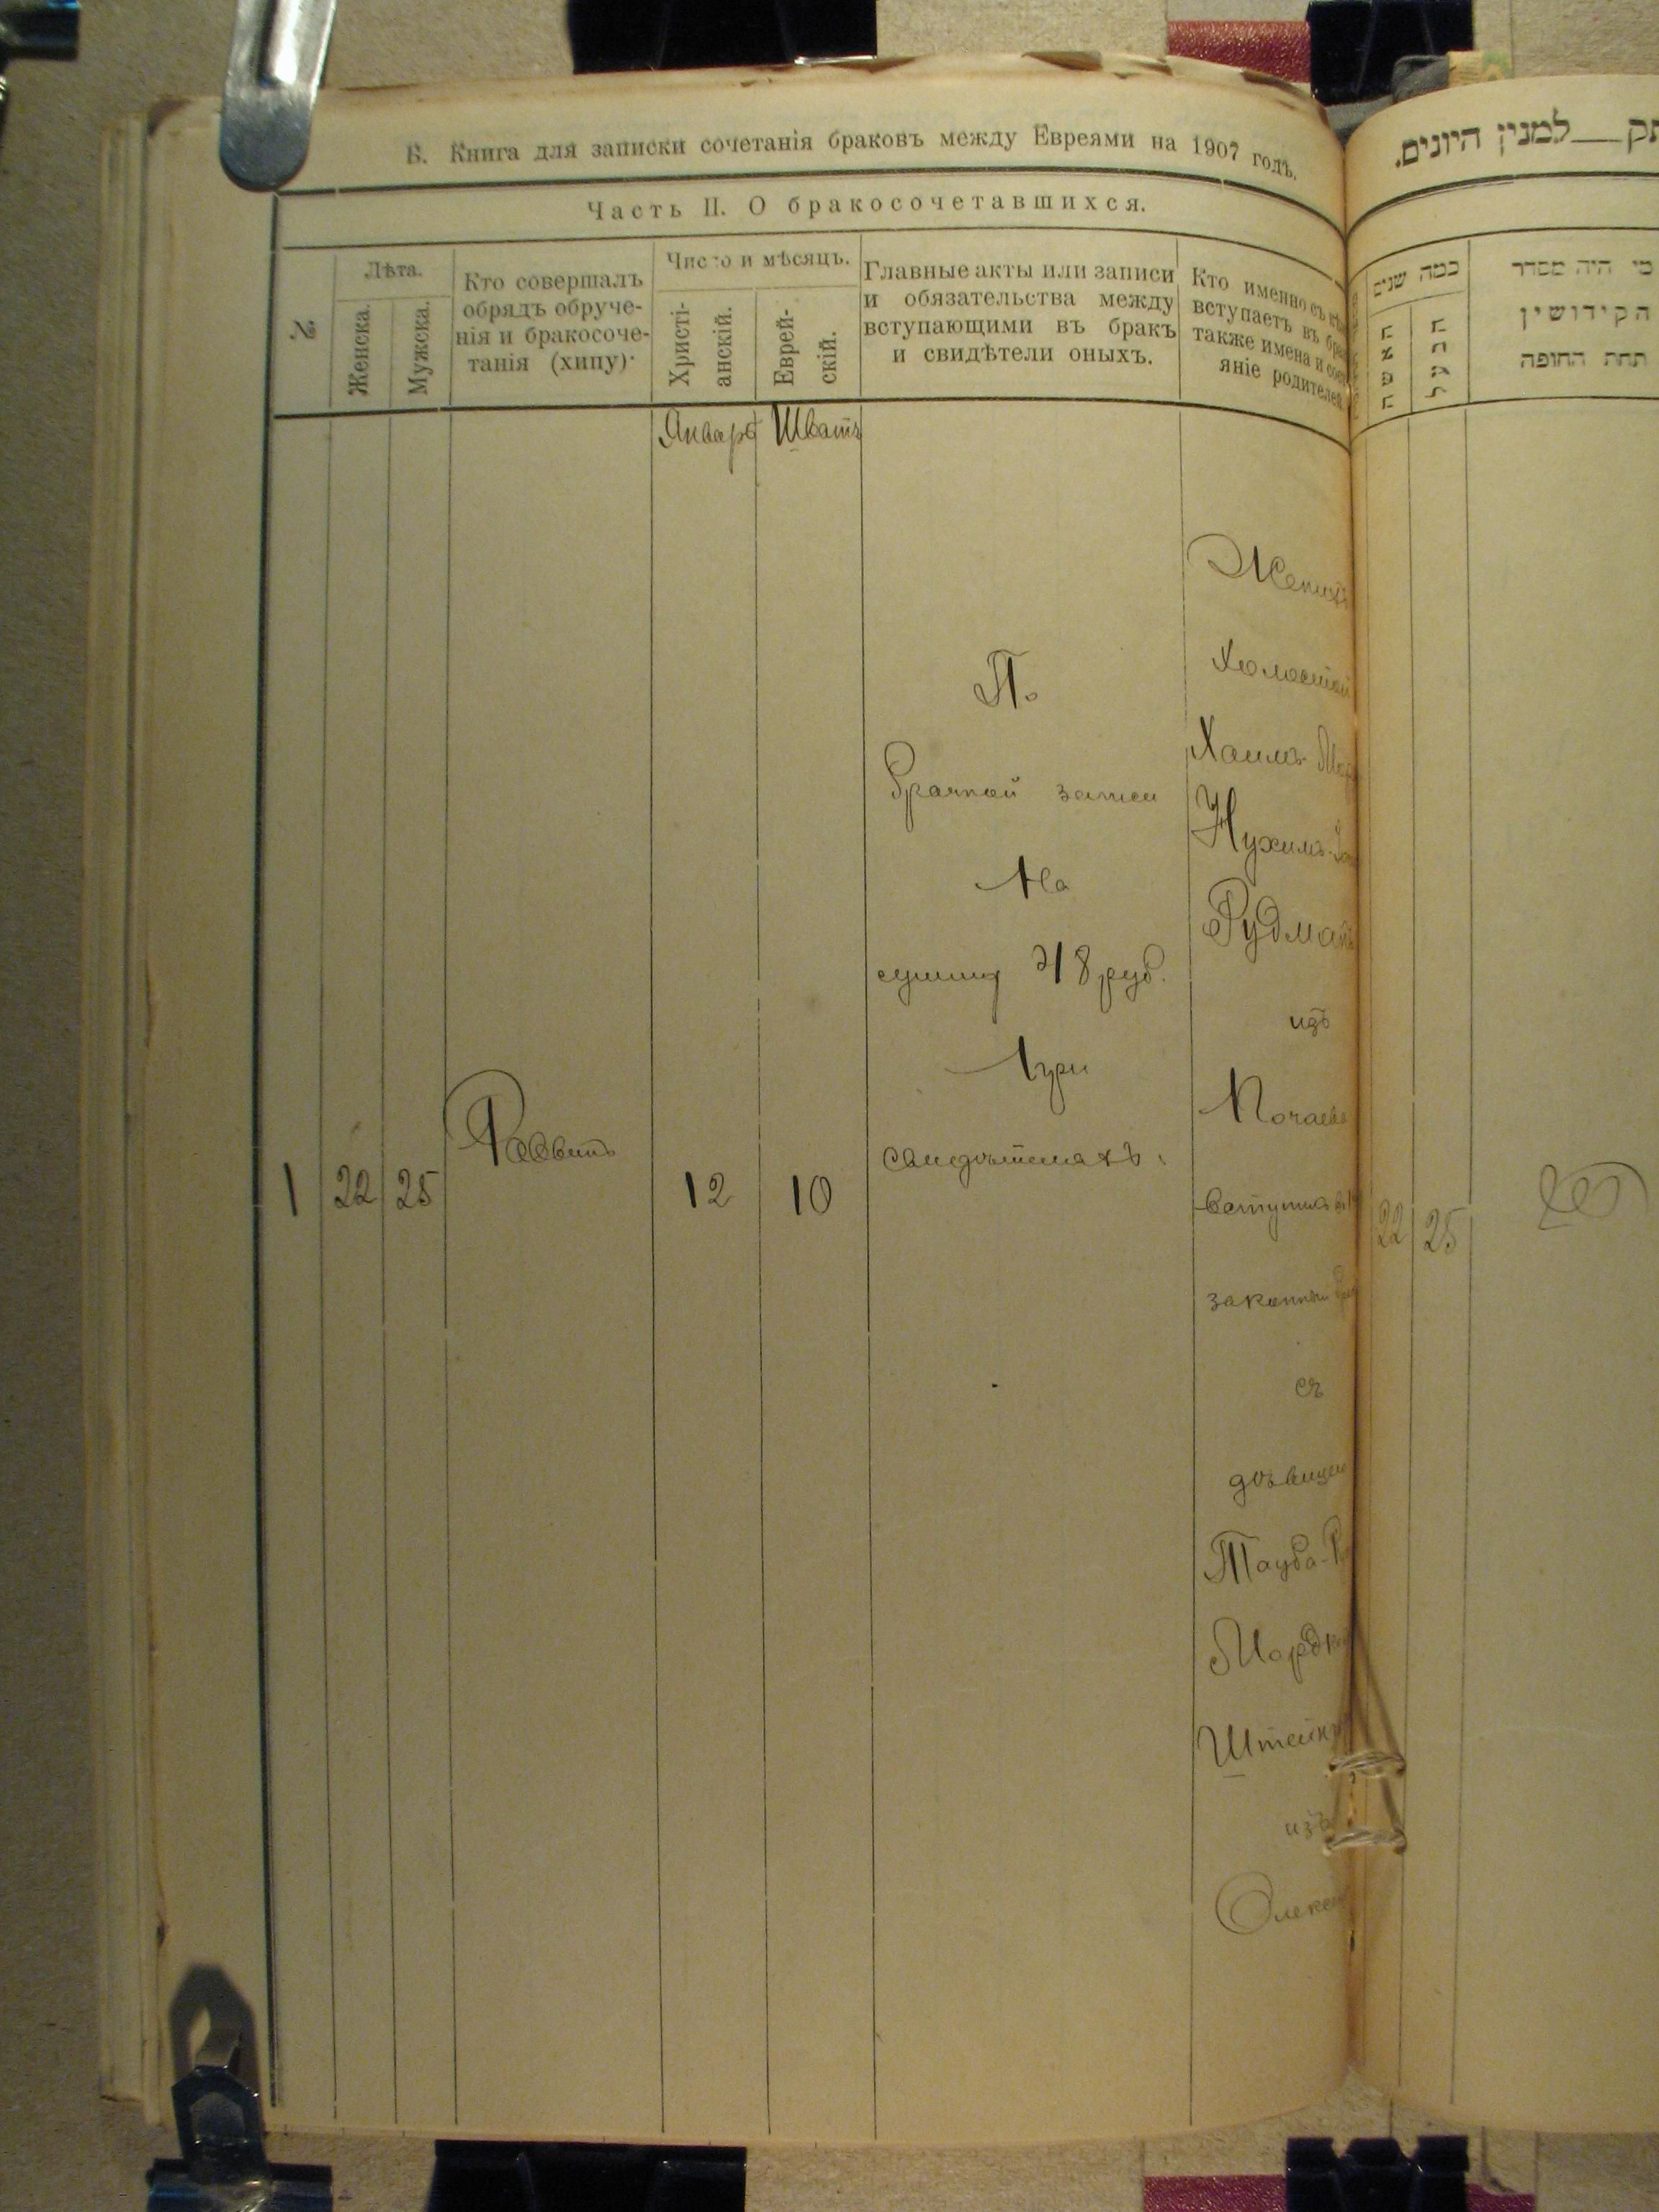 В. Книга для записки сочетанія браковъ между Евреями на 1907 годъ.
Часть II. О бракосочетавшихся.
№
Лѣта.
Женска.
Мужска.
Кто совершалъ
обрядъ обруче-
нія и бракосоче-
танія (хипу)
Число и мѣсяцъ.
Христі-
анскій.
Еврей-
скій.
Главные акты или записи
и обязательства между
вступающими въ бракъ
и свидѣтели оныхъ.
Кто именно съ
вступаетъ въ
также имена и
яніе родителей
Январь Шватъ
1 22 25 Раввинъ 12 10
По
брачной записи
на
сумму 48 руб.
при
свидѣтеляхъ:
Женихъ
холостой
Хаимъ
Нухимъ
Рудманъ
изъ
Почаева
вступилъ въ
законный
съ
дѣвицею
Тауба
Мордко
Штейн
изъ
Олекс
למנין היונים.
כמה שנים
האשה
הבעל
מי היה מסדר
הקידושין
תחת החופה
22 25